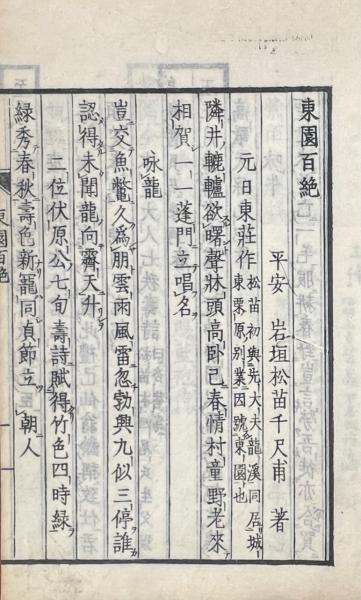 東園百絶
平安　岩垣松苗千尺甫　著
元日東莊作
松苗初與先大夫龍溪同居城
東栗原別業因號東園也
隣井轆轤欲曙聲牀頭高臥已春情村童野老來
相賀一一蓬門立唱名
咏龍
豈交魚鼈久爲朋雲雨風雷忽勃興九似三停誰
認得未聞龍向霽天升
二位伏原公七旬壽詩賦得竹色四時綠
綠秀春秋壽色新龍同貞節立王朝人
東園百絶